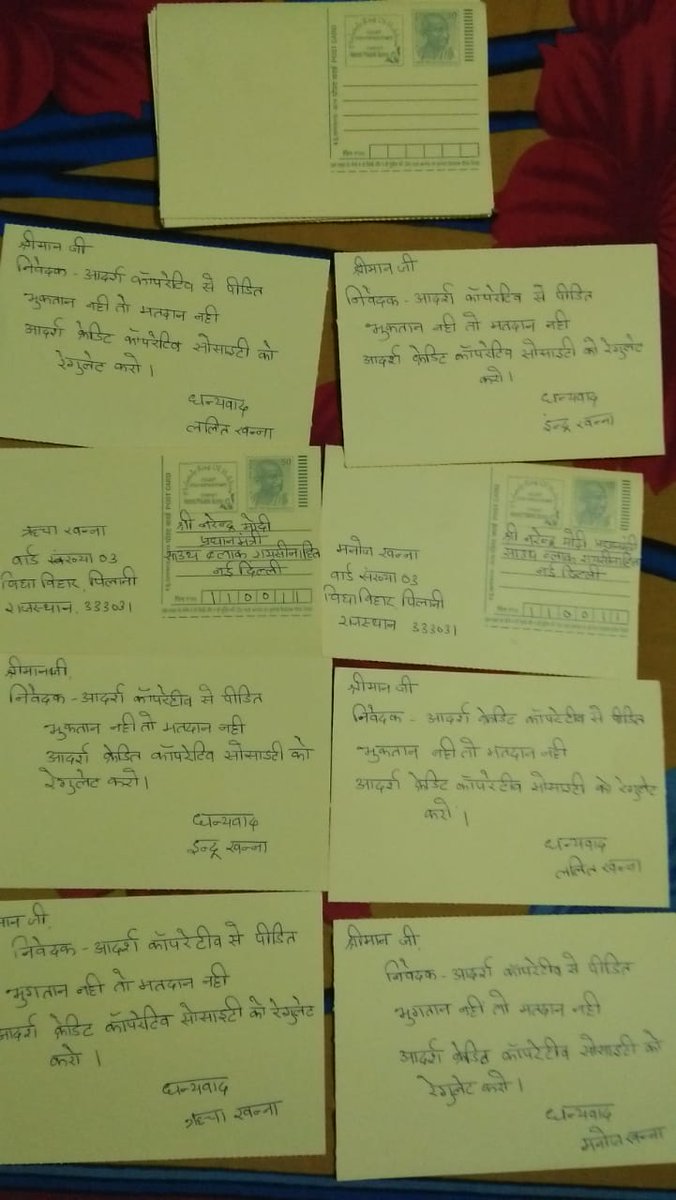 POST CARD
श्रीमान जी
निवेदक - आदर्श कॉपरेटिव से पीडित
भुकतान नही तो मतदान नही
आदर्श क्रेडिट कॉपरेटिव सोसाइटी को
रेगुलेट करो ।
धन्यवाद
ललित खन्ना
श्रीमान जी
निवेदक - आदर्श कॉपरेटिव से पीडित
भुकतान नही तो मतदान नही
आदर्श क्रेडिट कॉपरेटिव सोसाइटी को रेगुलेट
करो ।
धन्यवाद
इन्द्र खन्ना
ऋचा खन्ना
वार्ड संख्या 03
विद्या विहार, पिलानी
राजस्थान, 333031
POST CARD
50
श्री नरेन्द्र मोदी
प्रधानमंत्री
साउथ ब्लाक रायसीना हिल
नई दिल्ली
110011
मनोज खन्ना
वार्ड संख्या 03
विद्या विहार पिलानी
राजस्थान 333031
POST CARD
श्री नरेन्द्र मोदी प्रधानमंत्री
साउथ ब्लाक रायसीना हिल
नई दिल्ली
110011
श्रीमान जी
निवेदक - आदर्श कॉपरेटीव से पीडित
भुकतान नही तो मतदान नही
आदर्श क्रेडित कॉपरेटिव सोसाइटी को
रेगुलेट करो ।
धन्यवाद
इन्द्र खन्ना
श्रीमान जी
निवेदक - आदर्श क्रेडिट कॉपरेटीव से पीडित
भुकतान नही तो मतदान नही
आदर्श क्रेडिट कॉपरेटिव सोसाइटी को रेगुलेट
करो ।
धन्यवाद
ललित खन्ना
मान जी
निवेदक - आदर्श कॉपरेटीव से पीडित
भुगतान नही तो मतदान नही
आदर्श क्रेडिट कॉपरेटिव सोसाइटी को रेगुलेट
करो ।
धन्यवाद
ऋचा खन्ना
श्रीमान जी
निवेदक - आदर्श कॉपरेटीव से पीडित
भुगतान नही तो मतदान नही
आदर्श क्रेडित कॉपरेटिव सोसाइटी को
रेगुलेट करो ।
धन्यवाद
मनोज खन्ना